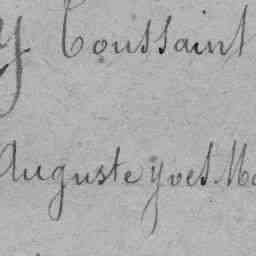 y Toussaint
Auguste Yves Ma